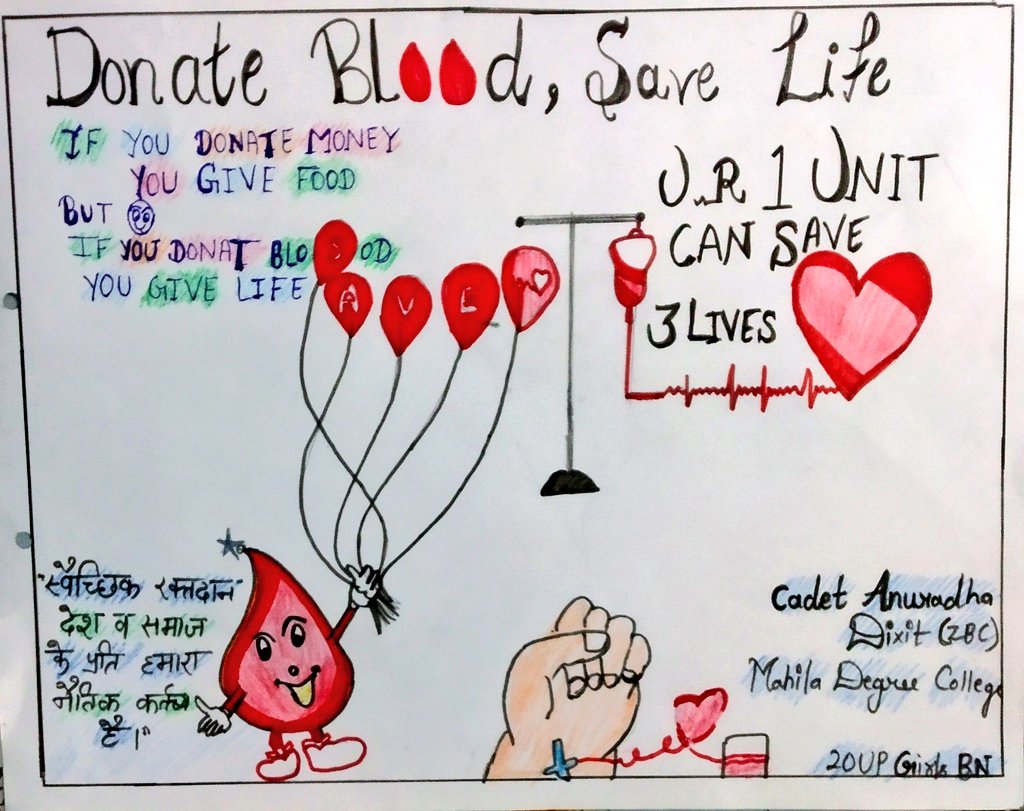 Donate Blood, Save Life
IF YOU DONATE MONEY
YOU GIVE FOOD
BUT
IF YOU DONAT BLOOD
YOU GIVE LIFE
S A V E
U.R 1 UNIT
CAN SAVE
3 LIVES
"स्वैच्छिक रक्तदान
देश व समाज
के प्रति हमारा
नैतिक कर्तव्य
है।"
Cadet Anuradha
Dixit (ZBC)
Mahila Degree College
20UP Girls BN